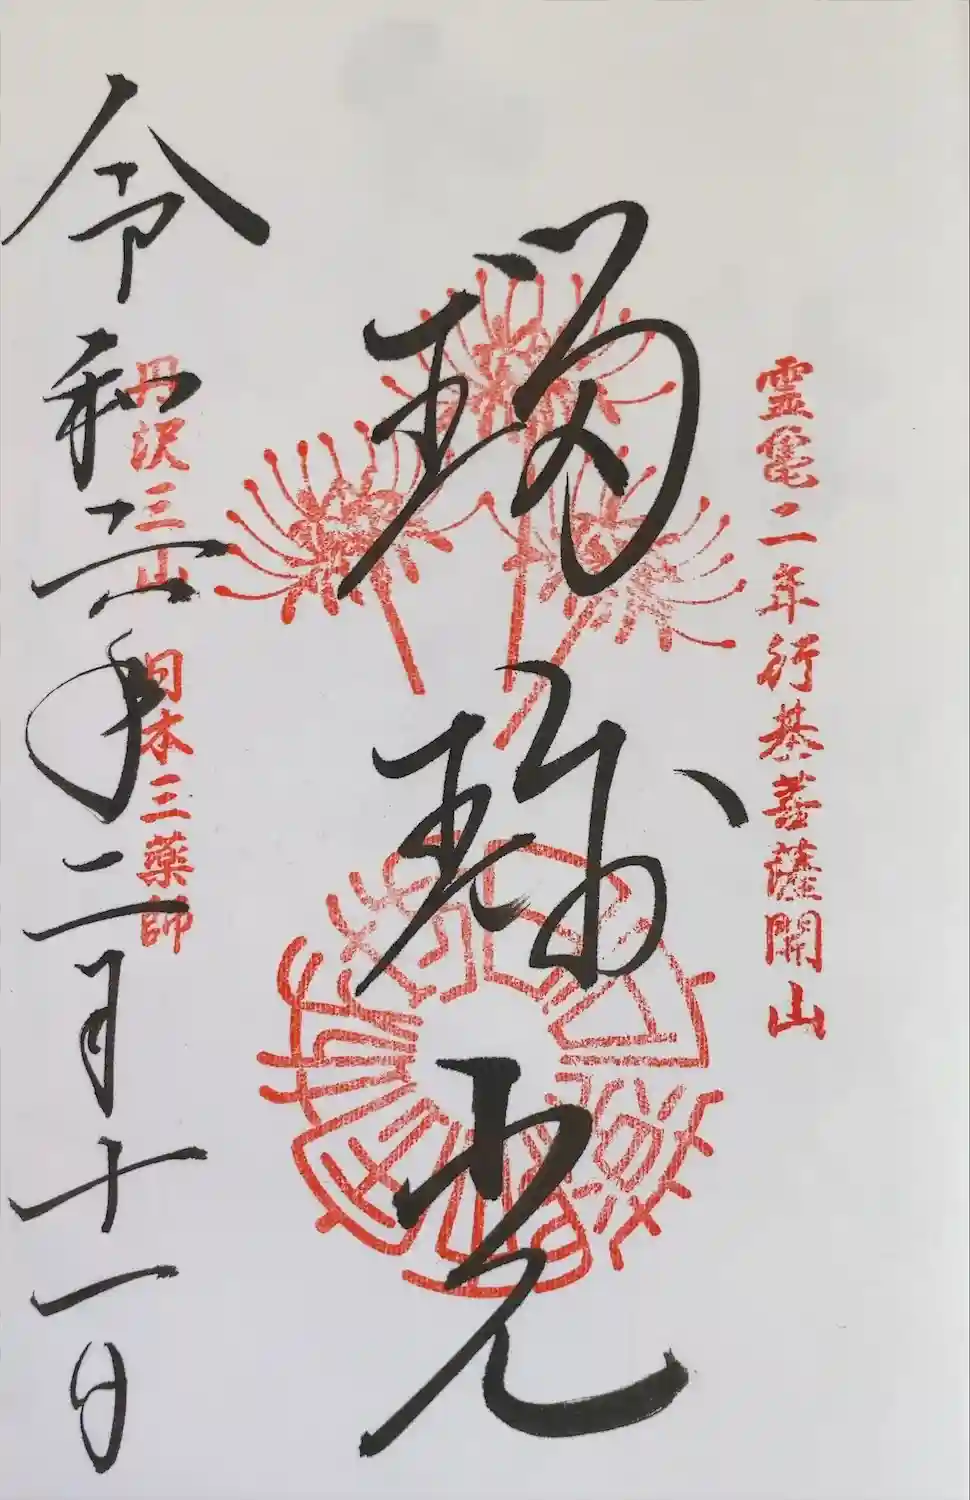 霊亀二年行基菩薩開山
瑠璃光
丹沢三山 日本三薬師
令和六年二月十一日